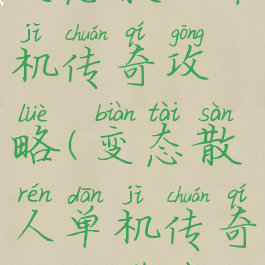 jī chuán qí gōng
机传奇攻
lüè biàn tài sàn
略(变态散
rén dān jī chuán qí
人单机传奇